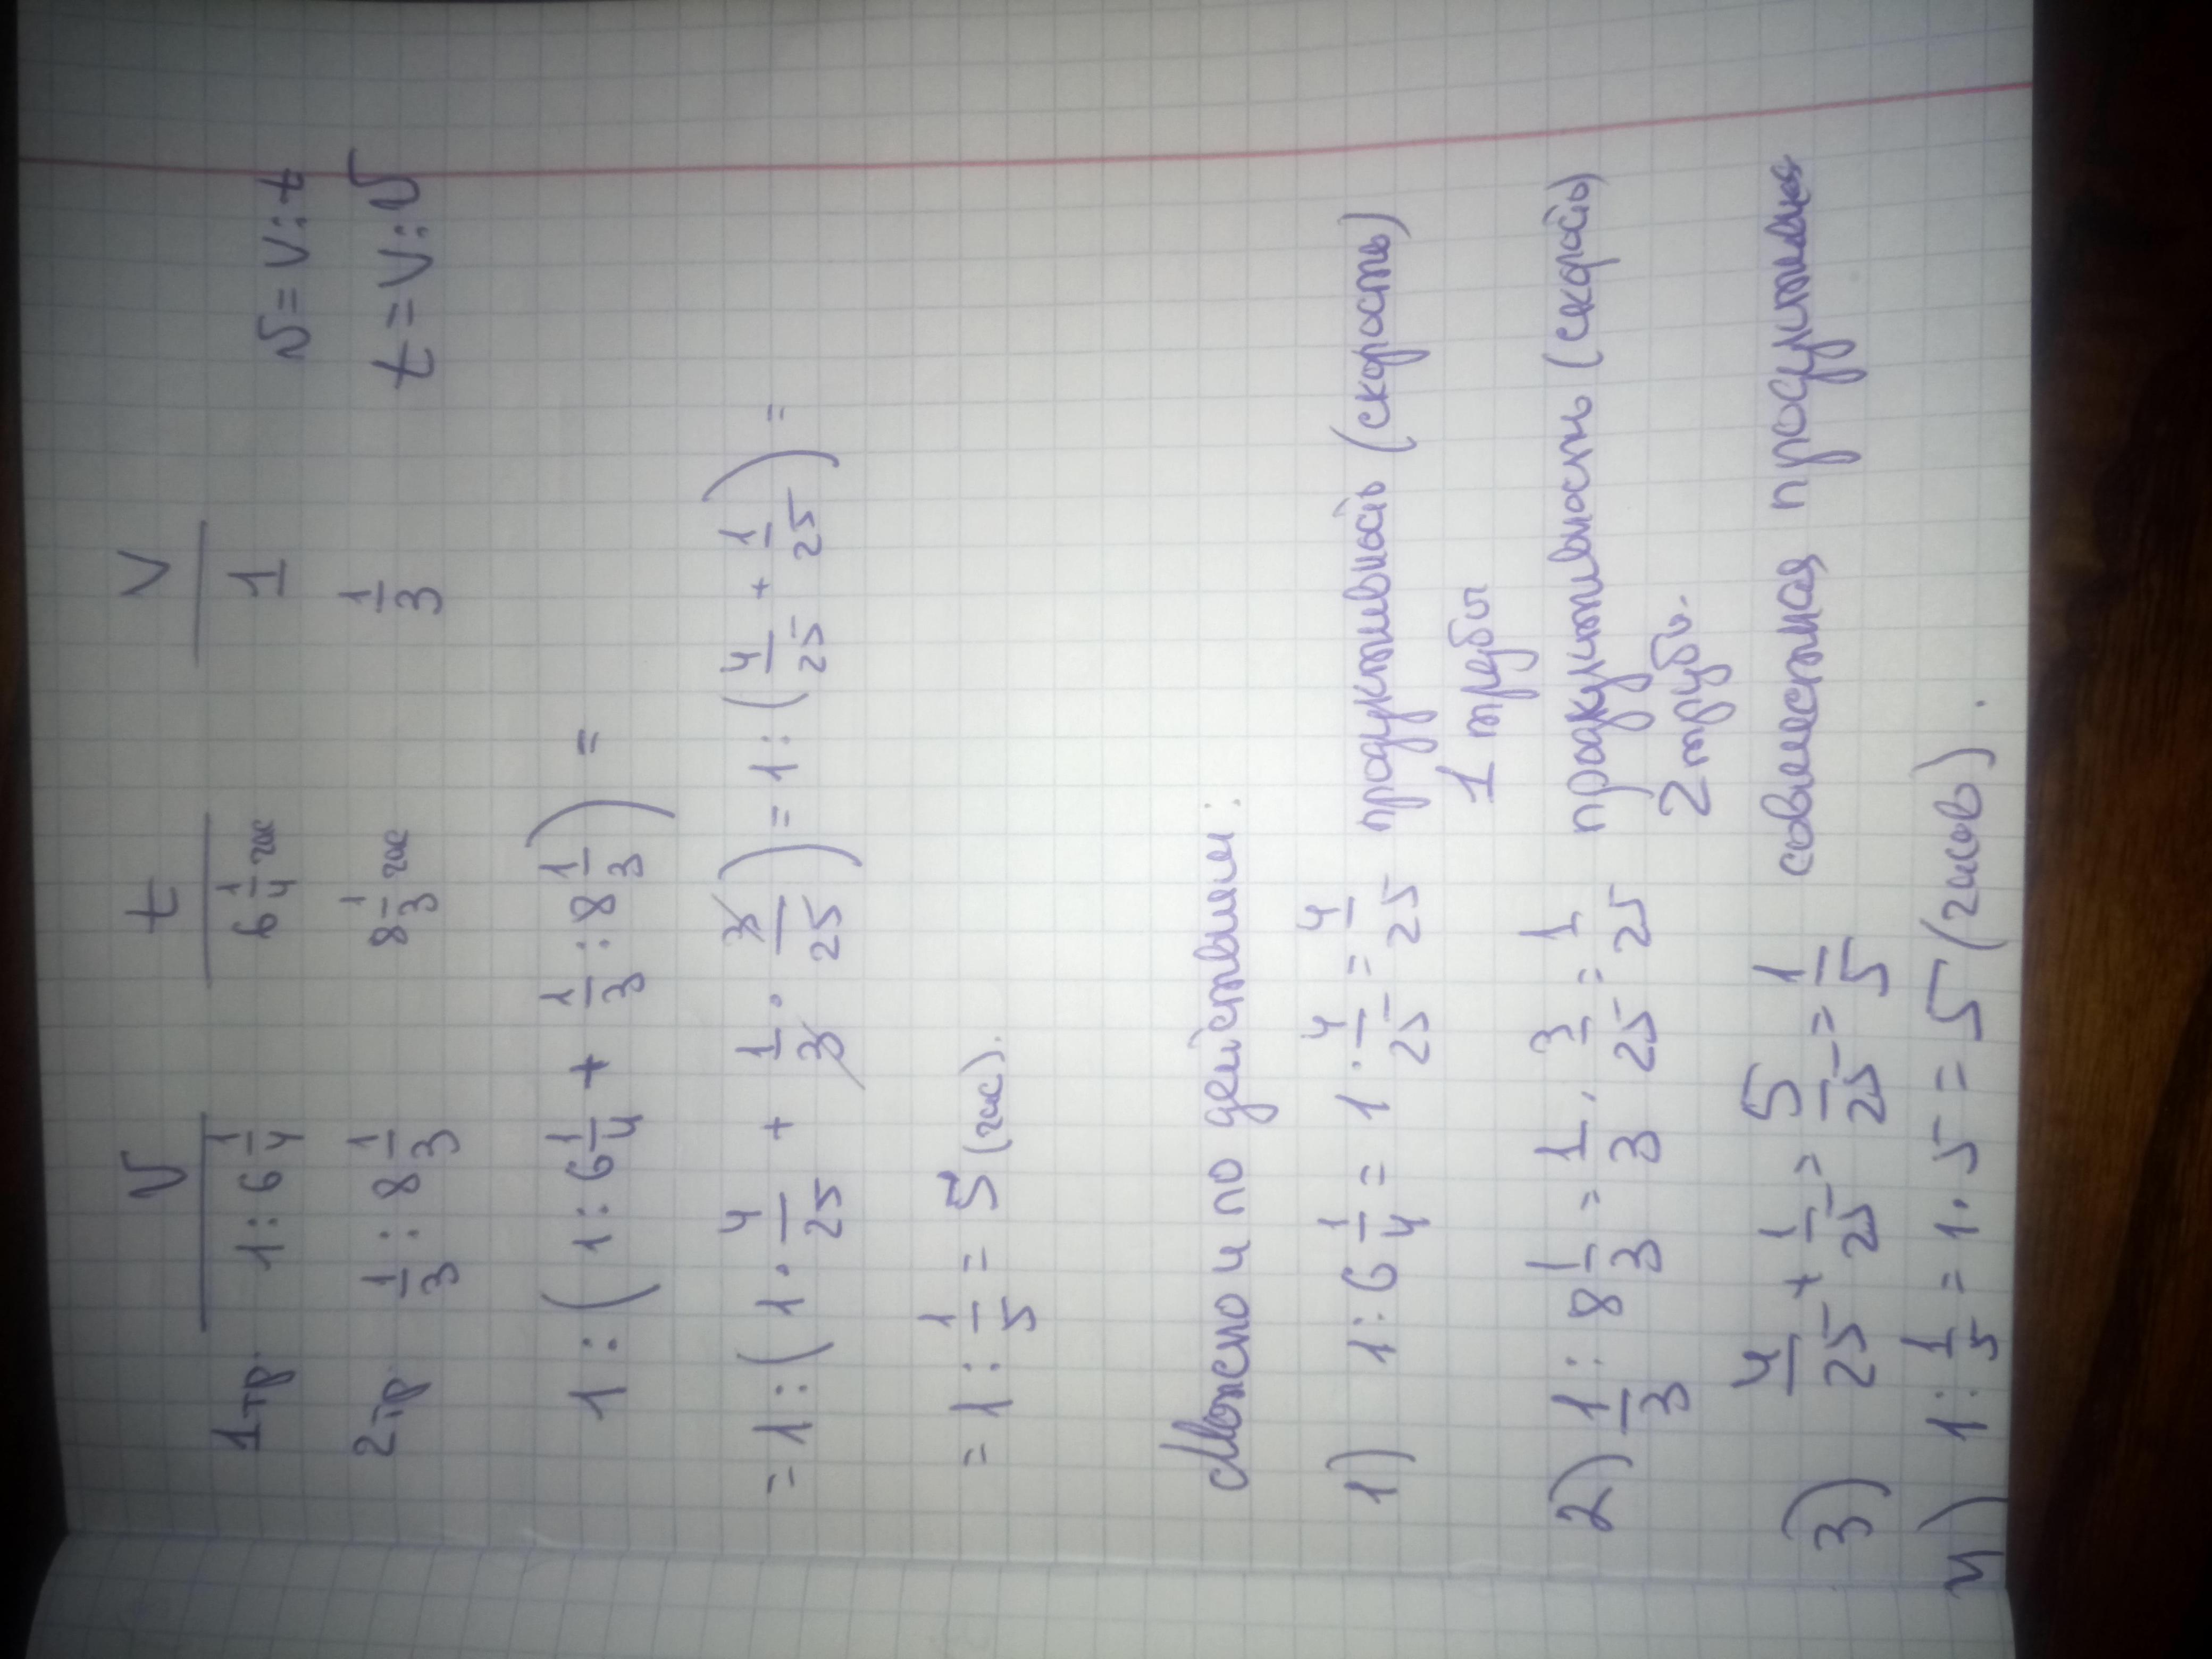 v t V
1тр. 1 : 6 1/4 6 1/4 час 1 v = V : t
2тр 1/3 : 8 1/3 8 1/3 час 1/3 t = V : v
1 : ( 1 : 6 1/4 + 1/3 : 8 1/3 ) =
= 1 : ( 1 · 4/25 + 1/3 · 3/25 ) = 1 : ( 4/25 + 1/25 ) =
= 1 : 1/5 = 5 (час).
Можно и по действиям:
1) 1 : 6 1/4 = 1 · 4/25 = 4/25 продуктивность (скорость)
1 трубы
2) 1/3 : 8 1/3 = 1/3 · 3/25 = 1/25 продкуктивность (скорость)
2 трубы.
3) 4/25 + 1/25 = 5/25 = 1/5 совместная
4) 1 : 1/5 = 1 · 5 = 5 (часов).